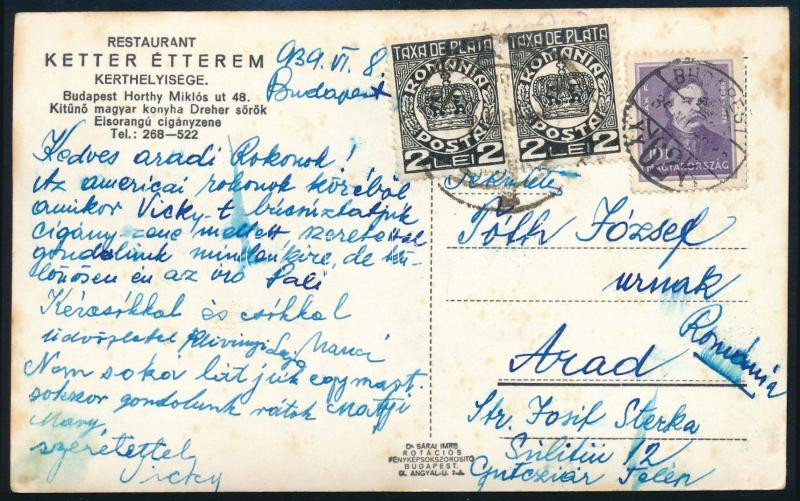 RESTAURANT
KETTER ÉTTEREM
KERTHELYISEGE.
Budapest Horthy Miklós ut 48.
Kitünő magyar konyha Dreher sörök
Elsorangú cigányzene
Tel.: 268-522
939. VI. 8.
Budapest
Kedves aradi Rokonok!
Az americai rokonok köréből
amikor Vicky-t búcsúztatjuk
cigány zene mellett szeretettel
gondolunk mindenkire, de kü-
lönösen én az író Pali
Kézcsókkal és csókkal
üdvözlettel Manci
Nem soka látjuk egymást.
sokszor gondolunk rátok
Mary
szeretettel
Vicky
TAXA DE PLATA
ROMANIA
POSTA
2 LEI 2
TAXA DE PLATA
ROMANIA
POSTA
2 LEI 2
BUDAPEST
10
MAGYARORSZÁG
Tóth József
urnak
Arad
Románia
Str. Iosif Sterka
Sulitiu 12
Telep
Dr SÁRAI IMRE
ROTÁCIÓS
FÉNYKÉPSOKSZOROSITÓ
BUDAPEST.
IX. ANGYAL-U. 7-A.